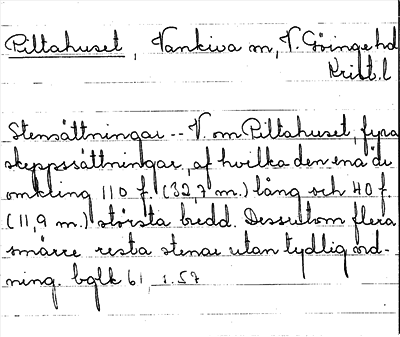 Piltahuset, Vankiva sn, V. Göinge hd
Krist.l
Stensättningar -- V. om Piltahuset, fyra
skeppssättningar, af hvilka den ena är
omkring 110 f. (32,7 m.) lång och 40 f.
(11,9 m.) största bredd. Dessutom flera
smärre resta stenar utan tydlig ord-
ning. bglk 61, s. 57